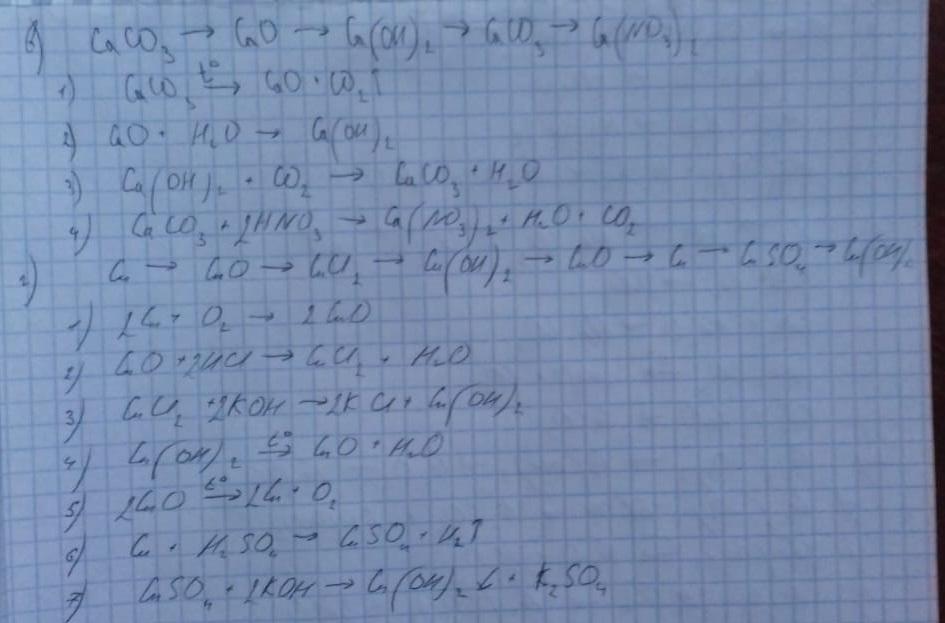 в) CaCO₃ → CaO → Ca(OH)₂ → CaCO₃ → Ca(NO₃)₂
1) CaCO₃ t°→ CaO + CO₂↑
2) CaO + H₂O → Ca(OH)₂
3) Ca(OH)₂ + CO₂ → CaCO₃ + H₂O
4) CaCO₃ + 2HNO₃ → Ca(NO₃)₂ + H₂O + CO₂
г) Cu → CuO → CuCl₂ → Cu(OH)₂ → CuO → Cu → CuSO₄ → Cu(OH)₂
1) 2Cu + O₂ → 2CuO
2) CuO + 2HCl → CuCl₂ + H₂O
3) CuCl₂ + 2KOH → 2KCl + Cu(OH)₂
4) Cu(OH)₂ t°→ CuO + H₂O
5) 2CuO t°→ 2Cu + O₂
6) Cu + H₂SO₄ → CuSO₄ + H₂↑
7) CuSO₄ + 2KOH → Cu(OH)₂↓ + K₂SO₄